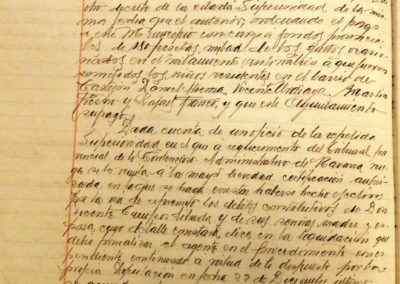 otro oficio de la citada Superioridad de la mis-
ma fecha que el anterior, ordenando el pago
a este Municipio con cargo a fondos provincia
les de 150 pesetas, mitad de los gastos ocasio-
nados en el tratamiento antirrábico a que fueron
sometidos los niños residentes en el barrio de
Castejón Ángel Sierra, Vicente Martín
Fierro y Rafael Franco, y que este Ayuntamiento
sufragó.
Dada cuenta de un oficio de la repetida
Superioridad en el que a requerimiento del Tribunal pro
vincial de lo Contencioso Administrativo de Navarra rue-
ga se le remita a la mayor brevedad certificación autori-
zada, en la que se haga constar haberse hecho efectivos
por la vía de apremio los débitos constitutivos de Don
Vicente Campos y de sus señoras madre y es-
posa, cuyo detalle constará, dice, en la liquidación que
debió formalizar el agente en el procedimiento corres-
pondiente continuado a virtud de lo dispuesto por la
propia Diputación en fecha 22 de Diciembre último